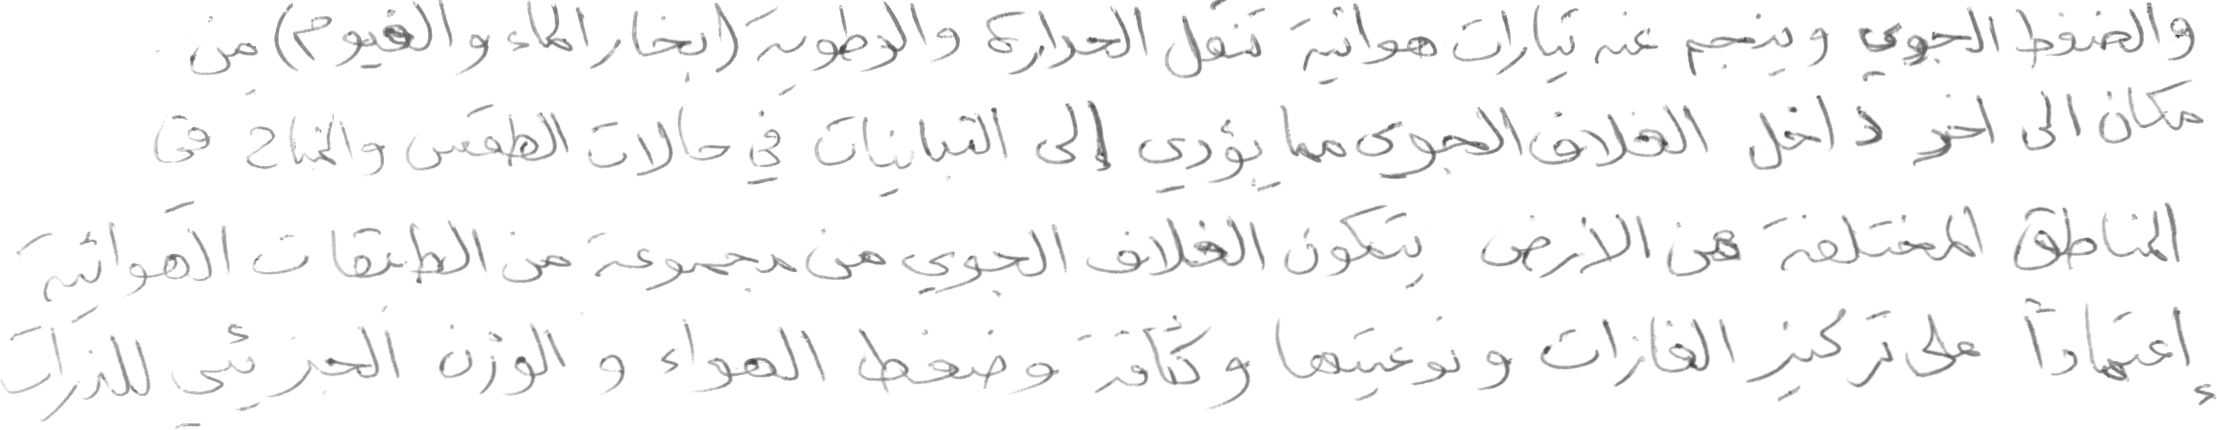 والضغط الجوي وينجم عنه تيارات هوائية تنقل الحرارة والرطوبة (بخار الماء والغيوم) من
مكان الى اخر داخل الغلاف الجوي مما يؤدي إلى التباينات في حالات الطقس والمناخ في
المناطق المختلفة من الارض يتكون الغلاف الجوي من مجموعة من الطبقات الهوائية
إعتماداً على تركيز الغازات ونوعيتها وكثافة وضغط الهواء و الوزن الجزيئي للذرات